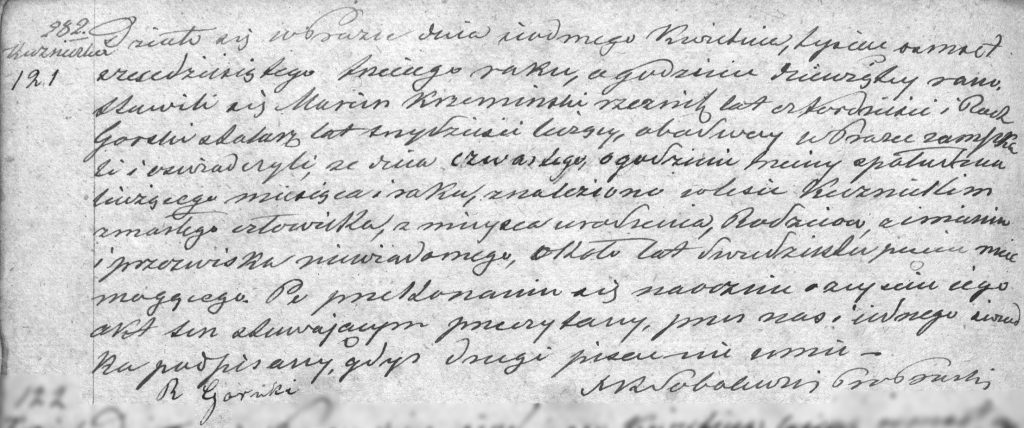 282.
Kuźnieckie
121
Działo się w Prazie dnia siódmego Kwietnia, tysiąc osmset
sześćdziesiątego trzeciego roku, o godzinie dziewiątej rano.
Stawili się Marcin Krzeminski rzeznik lat czterdzieści i Roch
Gorski stolarz lat trzydzieści liczący, obadway w Prazie zamieszka
li i oświadczyli, że dnia czwartego, o godzinie po południu
bieżącego miesiąca i roku, znaleziono w lesie Kuźnickim
zmarłego człowieka, z miejsca urodzenia, Rodziców, z imienia
i przezwiska niewiadomego, około lat dwadzieścia pięć mieć
mogącego. Po przekonaniu się naocznie o zejściu jego
akt ten stawającym przeczytany, przez nas i jednego świad
ka podpisany, gdyż drugi pisać nie umie –
R Gorski
X Sobolewski Prob Praski
122